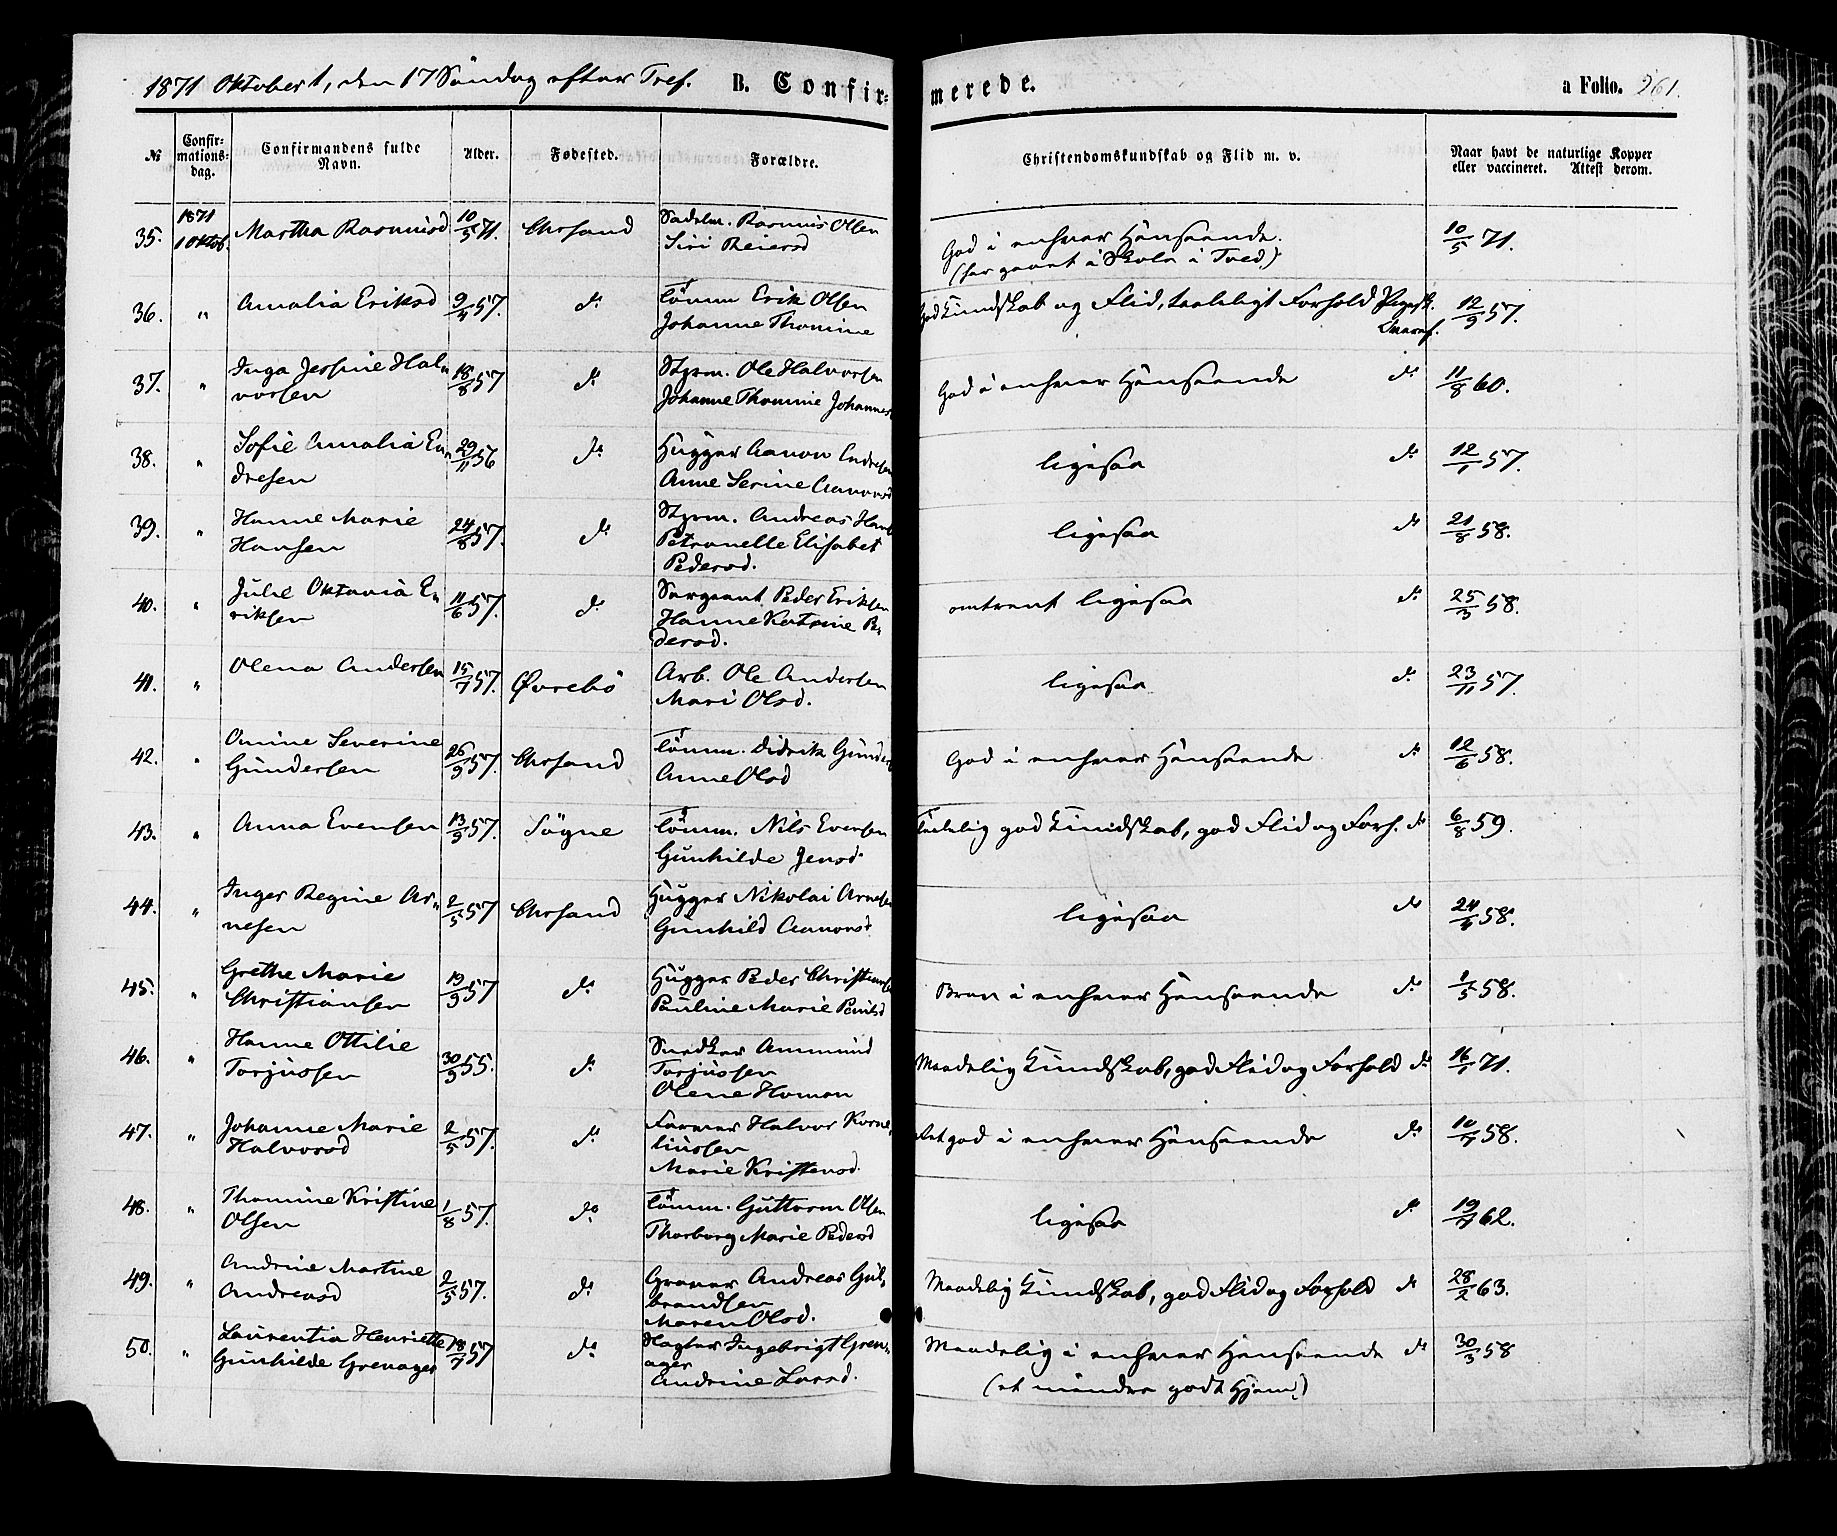 1871 Oktober 1, den 17 Söndag efter Tref. B. Confir-
merede. a Folio. 261.
№ Confir-mations-dag. Confirmandens fulde Navn. Alder. Fødested. Forældre. Christendomskundskab og Flid m. v. Naar havt de naturlige Kopper eller vaccineret. Attest derom.
35. 1871 1 Oktob. Martha Rasmusd 10/5 71. Chrsand Sadelm. Rasmus Olsen
Siri Reiersd God i enhver Henseende. 10/5 71.
(har gaaet i Skole i Tved)
36. " Amalia Eriksd 9/4 57. do Tömm Erik Olsen
Johanne Thomine God Kundskab og Flid, taaleligt Forhold 12/9 57.
37. " Inga Jessine Hal-
vorsen 18/8 57 do Styrm. Ole Halvorsen
Johanne Thomine Johannes God i enhver Henseende do 11/8 60.
38. " Sofie Amalia En-
dresen 29/11 56 do Hugger Aanon Endresen
Anne Serine Aanonsd ligesaa do 12/1 57.
39. " Hanne Marie
Hansen 24/8 57. do Styrm. Andreas Hans
Petronelle Elisabet
Pedersd. ligesaa do 21/8 58.
40. " Julie Oktavia E-
riksen 11/6 57. do Sergeant Peder Eriksen
Hanne Katrine Pe-
dersd. omtrent ligesaa do 25/3 58.
41. " Olena Andersen 15/7 57. Øvrebö Arb. Ole Andersen
Mari Olsd. ligesaa do 23/11 57.
42. " Omine Severine
Gundersen 26/9 57. Chrsand Tömm. Didrik Gunders
Anne Olsd God i enhver Henseende do 12/6 58.
43. " Anna Evensen 13/9 57. Sögne Tömm. Nils Evensen
Gunhilde Jensd. Temelig god Kundskab, god Flid og Forh. do 6/8 59.
44. " Inger Regine Ar-
nesen 2/5 57 Chrsand Hugger Nikolai Arnesen
Gunhild Aanonsd. ligesaa do 58.
45. " Grethe Marie
Christiansen 19/9 57 do Hugger Peder Christians
Pauline Marie Brav i enhver Henseende do 1/5 58.
46. " Hanne Ottilie
Torjussen 30/9 55. do Snedker Ammund
Torjussen
Olene Homan Maadelig Kundskab, god Flid og Forhold do 16/1 71.
47. " Johanne Marie
Halvorsd 2/5 57. do Farver Halvor Korne-
liussen
Marie Kristensd. Ret god i enhver Henseende do 58.
48. " Thomine Kristine
Olsen 1/8 57. do Tömm. Guttorm Olsen
Thorborg Marie Pedersd ligesaa do 62.
49. " Andrine Martine
Andreasd 2/5 57. do Graver Andreas Gul-
brandsen
Maren Olsd. Maadelig Kundskab, god Flid og Forhold do 28/2 63.
50. " Laurentia Henriette
Gunhilde Grenager 18/7 57 do Ingebrigt Gren-
ager
Andrine Larsd. Maadelig i enhver Henseende do 30/3 58
(et mindre godt Hjem.)